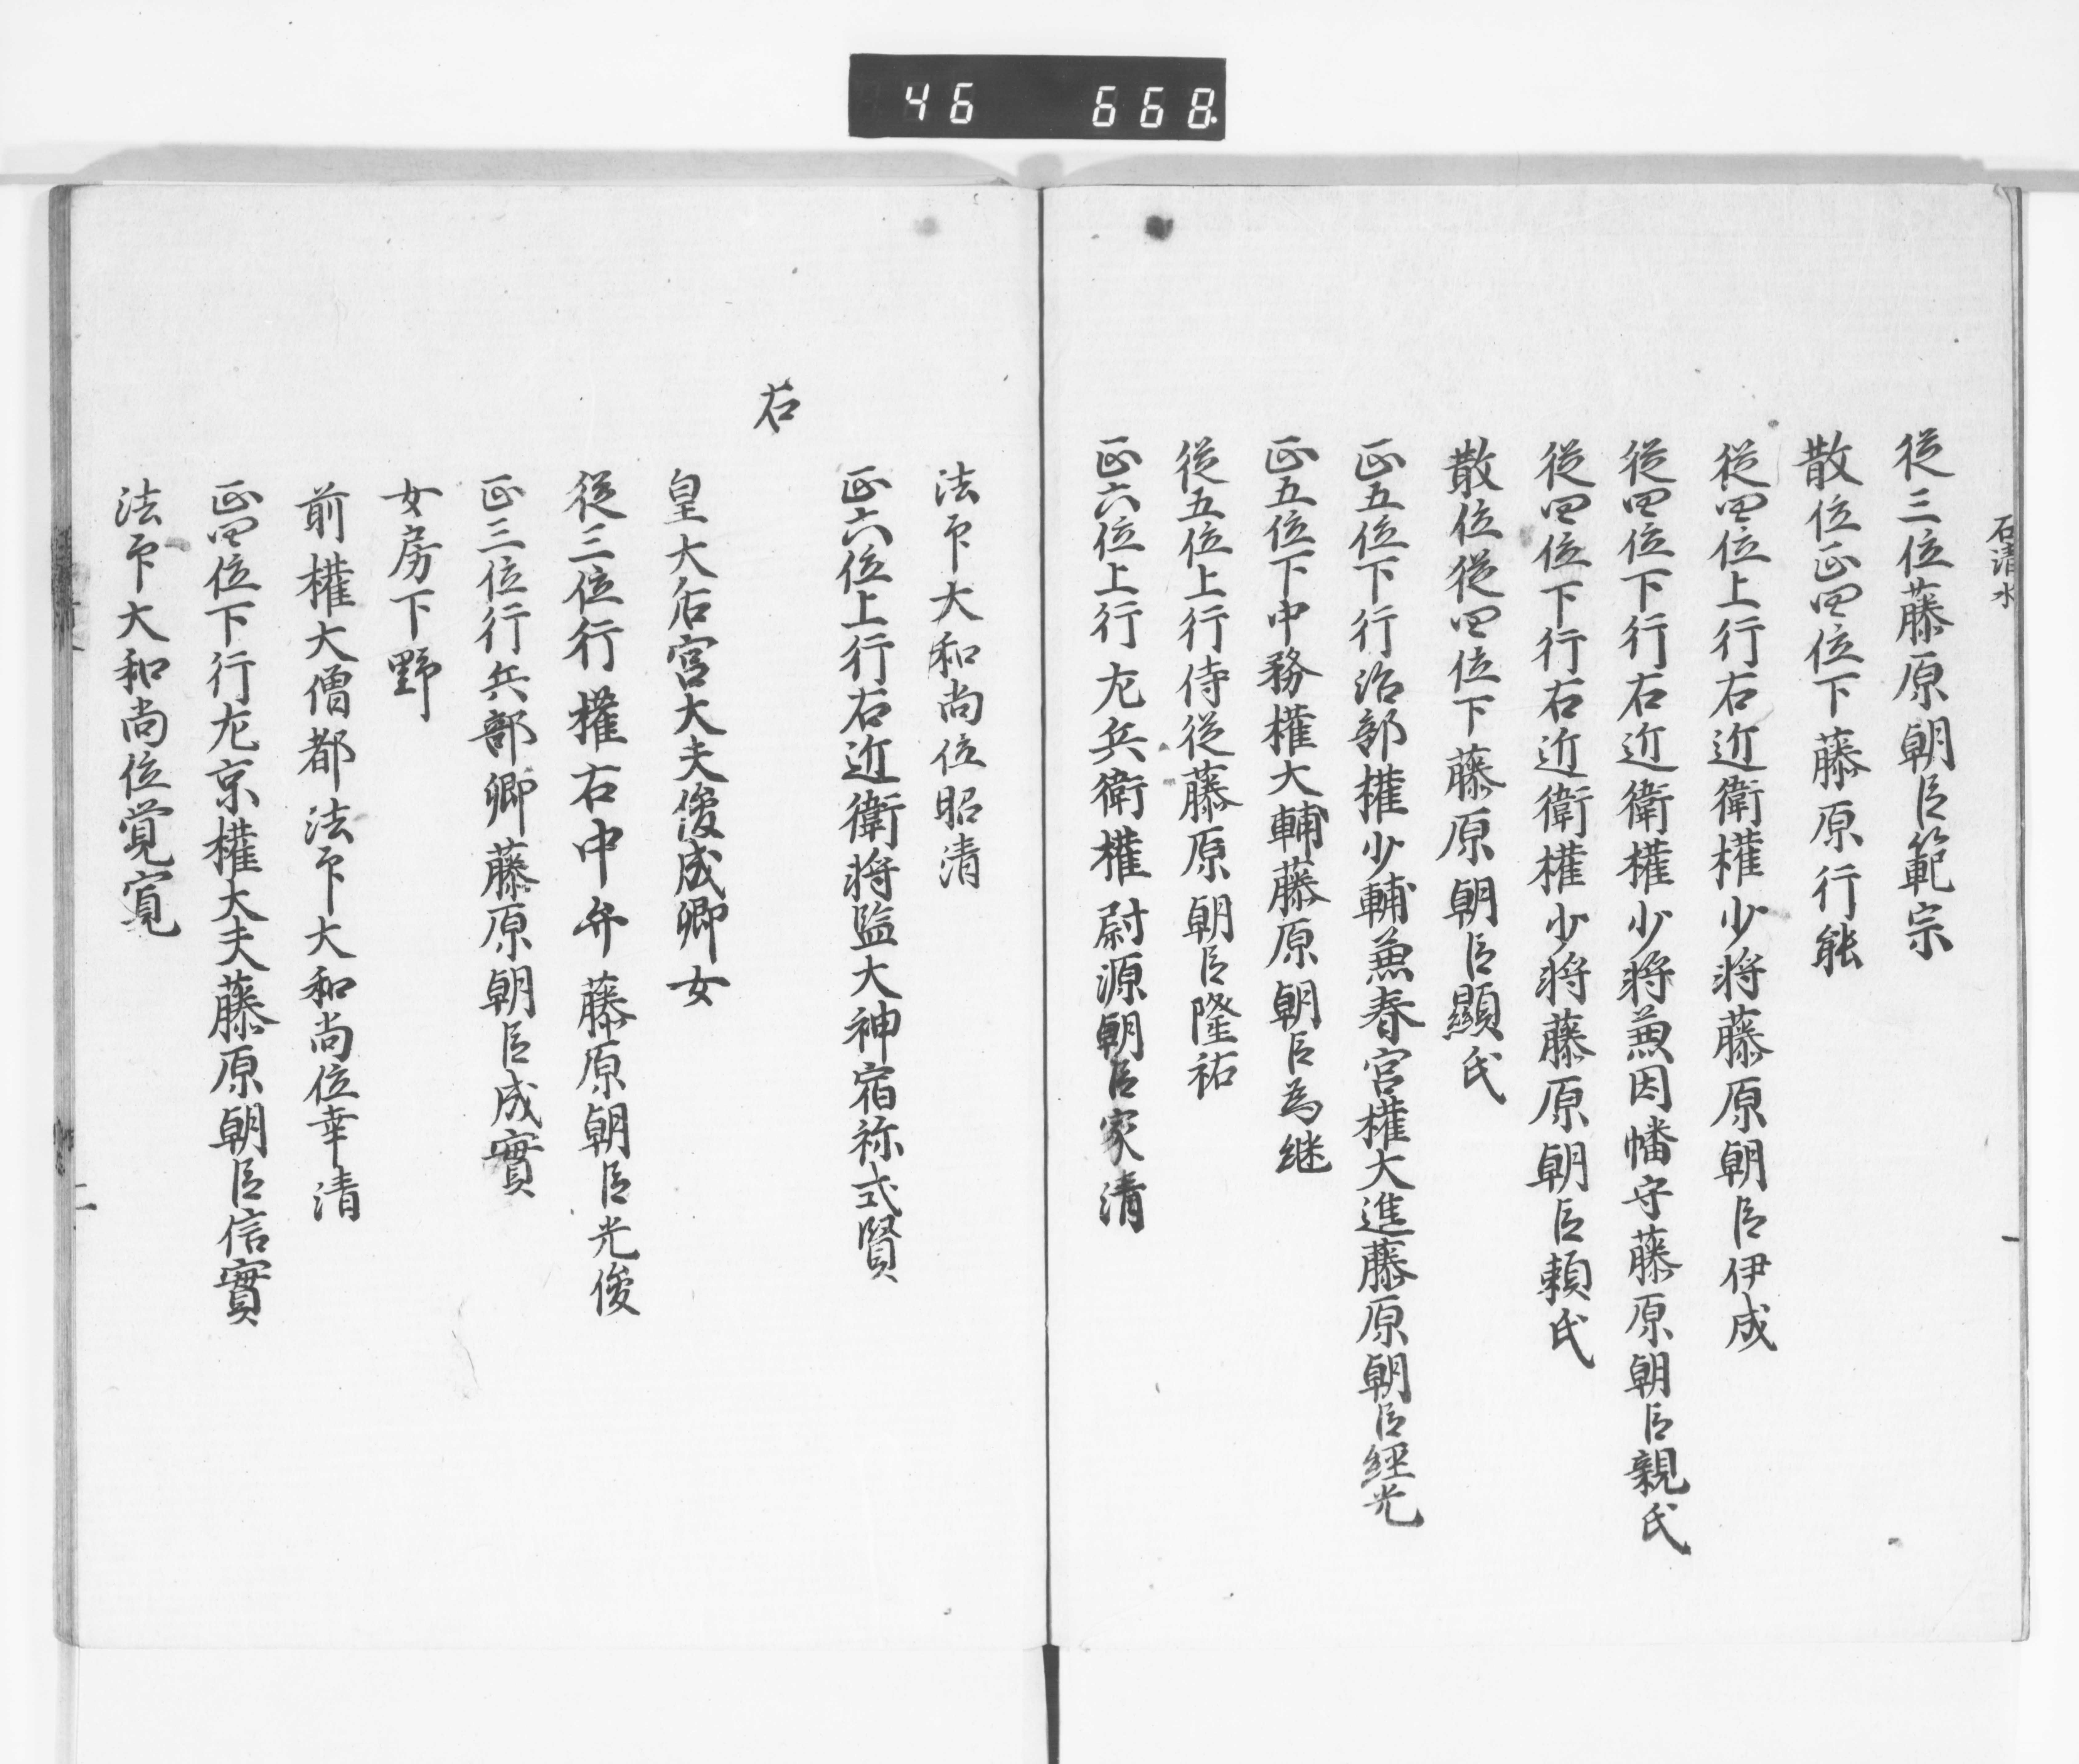 46 668.
石清水
従三位藤原朝臣範宗
散位正四位下藤原行能
従四位上行右近衛権少将藤原朝臣伊成
従四位下行右近衛権少将兼因幡守藤原朝臣親氏
従四位下行右近衛権少将藤原朝臣頼氏
散位従四位下藤原朝臣顯氏
正五位下行治部権少輔兼春宮権大進藤原朝臣經光
正五位下中務権大輔藤原朝臣為継
従五位上行侍従藤原朝臣隆祐
正六位上行左兵衛権尉源朝臣家清
法印大和尚位昭清
正六位上行右近衛将監大神宿祢式賢
右
皇大后宮大夫俊成卿女
従三位行権右中弁藤原朝臣光俊
正三位行兵部卿藤原朝臣成實
女房下野
前権大僧都法印大和尚位幸清
正四位下行左京権大夫藤原朝臣信實
法印大和尚位覚寛
二